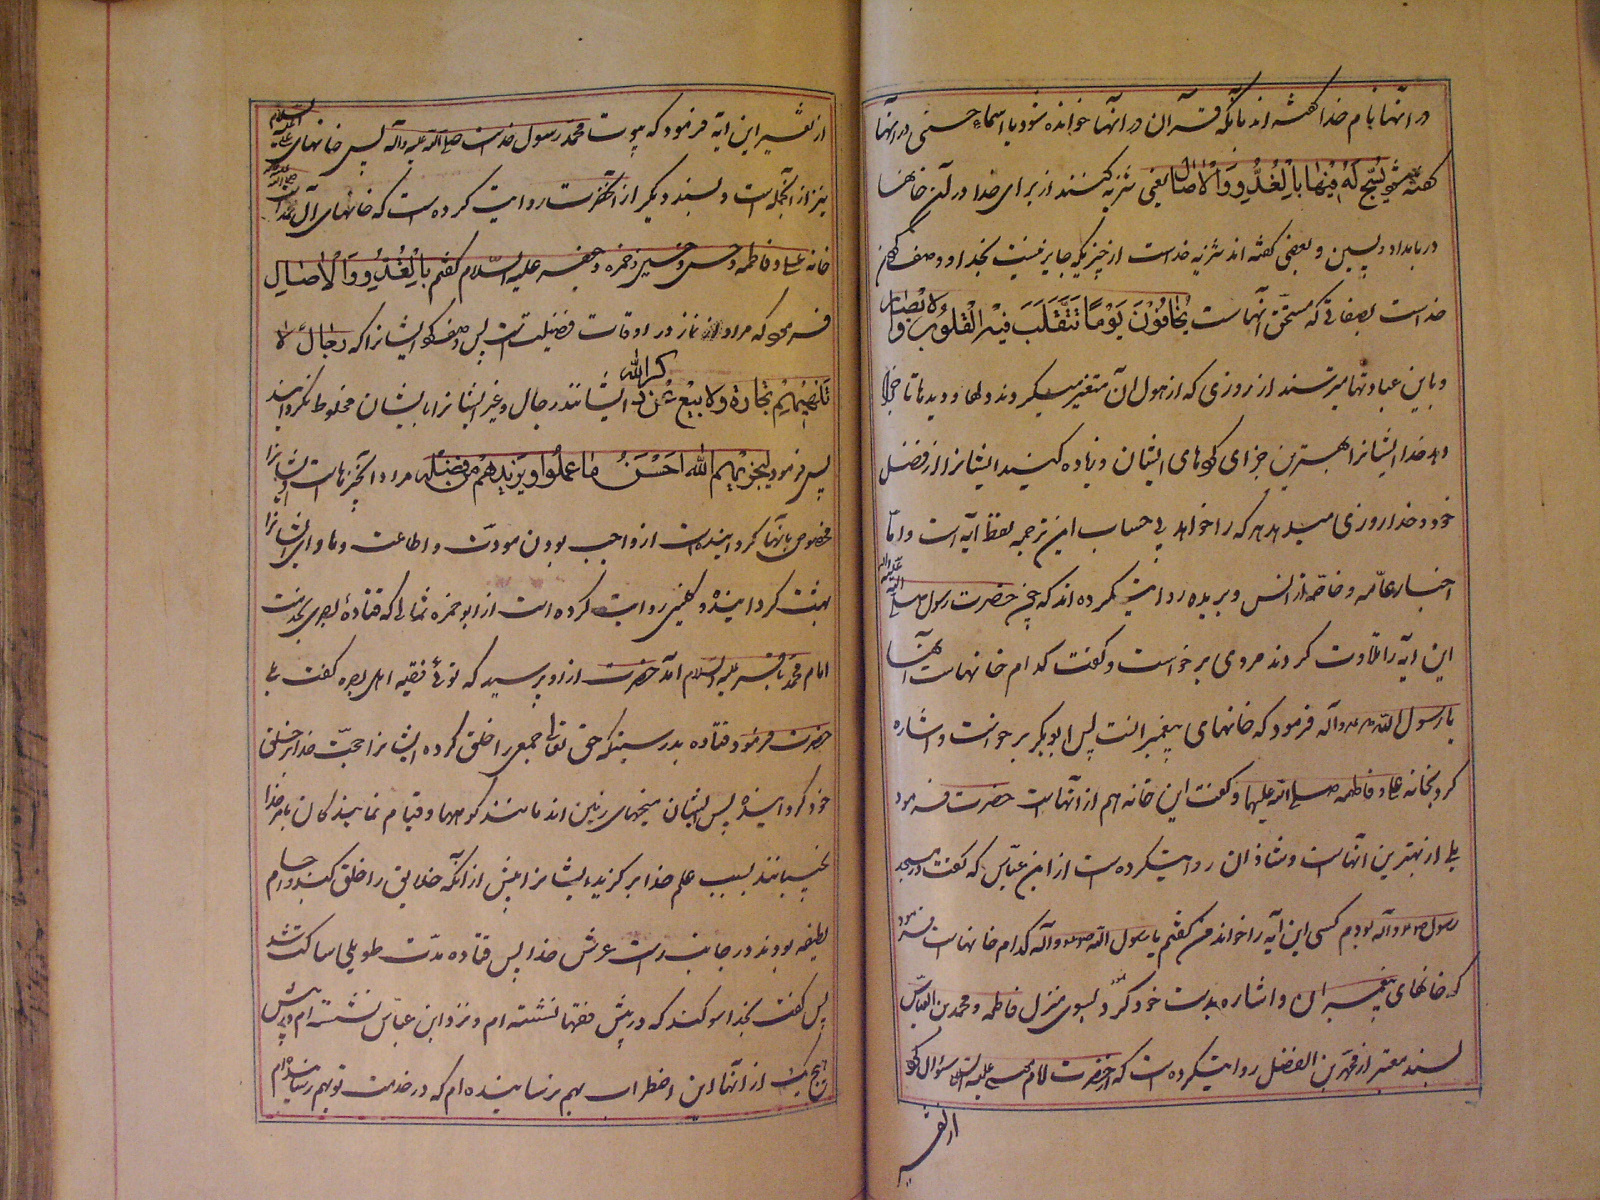 در آنها نام خدا گفته اند بآنکه قرآن در آنها خوانده شود یا اسماء حسنی در آنها
گفته شود یُسَبِّحُ لَهُ فِیْهَا بِالْغُدُوِّ وَالْاٰصَالِ یعنی تنزیه کنند از برای خدا در آن خانها
در بامداد و پسین و بعضی گفته اند تنزیه خداست از چیزیکه جایز نیست بخدا و وصف کردن
خداست بصفاتی که مستحق آنهاست یَخَافُوْنَ یَوْمًا تَتَقَلَّبُ فِیْهِ الْقُلُوْبُ وَالْاَبْصَارُ
و با این عبادتها میترسند از روزی که از هول آن متغیر میگردند دلها و دیدها تا جزا
دهد خدا ایشانرا بهترین جزای کردهای ایشان و زیاده کند ایشانرا از فضل
خود و خدا روزی میدهد هر که را خواهد بی حساب این ترجمه لفظ آیه است و امّا
اخبار عامّه و خاصّه از انس و بریده روایت کرده اند که چون حضرت رسول صلی الله علیه واله
این آیه را تلاوت کردند مردی برخواست و گفت کدام خانهاست آنها
یا رسول الله ص و آله فرمود که خانهای پیغمبرانست پس ابوبکر برخواست و اشاره
کرد بخانه علی و فاطمه صلی الله علیهما و گفت این خانه هم از آنهاست حضرت فرمود
بلی از بهترین آنهاست و شاذان روایت کرده است از ابن عبّاس که گفت در مسجد
رسول ص و آله بودم کسی این آیه را خواند من گفتم یا رسول الله ص و آله کدام خانهاست فرمود
که خانهای پیغمبران و اشاره بدست خود کرد بسوی منزل فاطمه و محمد بن العبّاس
بسند معتبر از محمّد بن الفضل روایت کرده است که از حضرت امام موسی علیه السلام سؤال کردم
از تفسیر
از تفسیر این آیه فرمود که بیوت محمّد رسول خداست صلی الله علیه وآله پس خانهای علی علیه السلام
نیز از آنجمله است و بسند دیگر از آنحضرت روایت کرده است که خانهای آل محمد صلی الله علیه
خانه علی و فاطمه و حسن و حسین و حمزه و جعفر علیه السلام گفتم بِالْغُدُوِّ وَالْاٰصَالِ
فرمود که مراد نماز در اوقات فضیلت است پس وصف کرد ایشانرا که رِجَالٌ لَا
تُلْهِیْهِمْ تِجَارَةٌ وَلَا بَیْعٌ عَنْ ذِکْرِ اللّٰه ایشانند رجال و غیر ایشانرا با ایشان مخلوط نگردانید
پس فرمود لِیَجْزِیَهُمُ اللّٰه اَحْسَنَ مَا عَمِلُوا وَیَزِیْدَهُمْ مِنْ فَضْلِهٖ مراد آنچیزهاست ایشانرا
مخصوص بآنها گردانیده است از واجب بودن مودّت و اطاعت و ماوای ایشانرا
بهشت گردانیده و کلینی روایت کرده است از ابوحمزه ثمالی که قتاده بصری بخدمت
امام محمّد باقر علیه السلام آمد حضرت از او پرسید که توئی فقیه اهل بصره گفت بلی
حضرت فرمود قتاده بدرستیکه حق تعالی جمعی را خلق کرده ایشانرا حجّت خدا بر خلق
خود گردانیده پس ایشان میخهای زمین اند مانند کوهها و قیام نمایندگان بامر خدا
نجیبانند بسبب علم خدا برگزیده ایشانرا پیش از آنکه خلایق را خلق کند و اجسام
لطیفه بودند در جانب راست عرش خدا پس قتاده مدّت طویلی ساکت شد
پس گفت بخدا سوگند که در پیش فقها نشسته ام و نزد ابن عبّاس نشسته ام و پیش
هیچ یک از آنها این اضطراب بهم نرسانیده ام که در خدمت تو بهم رسانیده ام